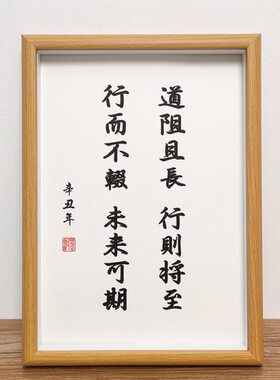 道阻且長 行則将至
行而不輟 未来可期
辛丑年